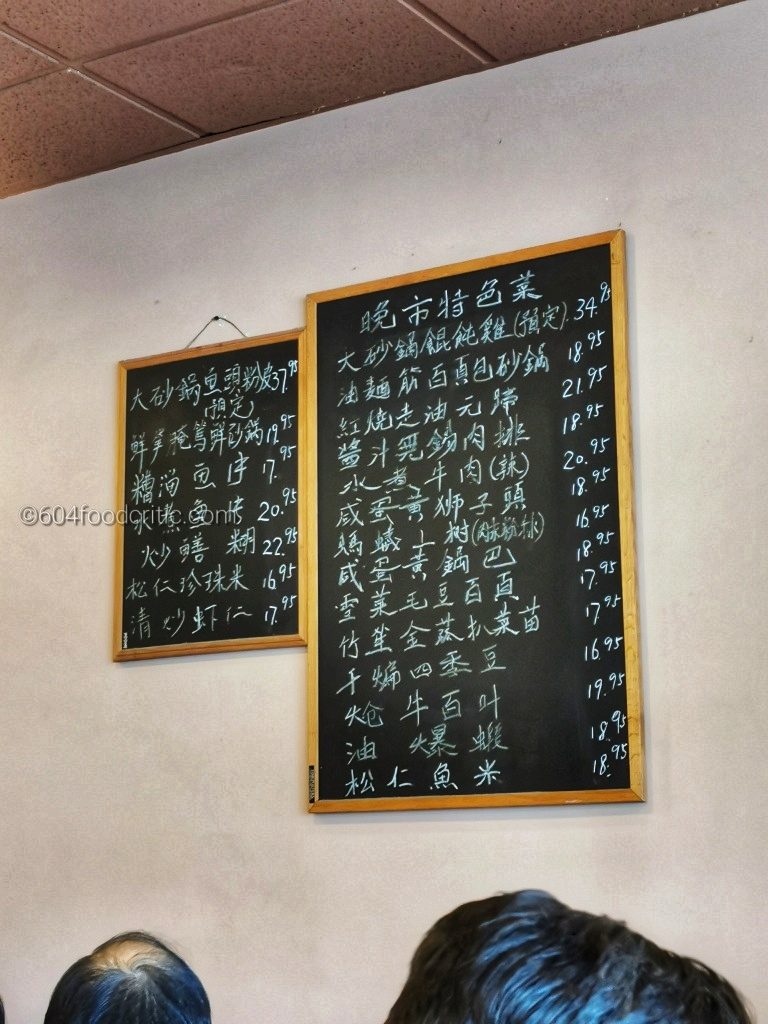 大砂鍋魚頭粉皮 37.95
(預定)
鮮笋腌篤鮮砂鍋 19.95
糟溜魚片 17.95
水煮魚 20.95
炒鱔糊 22.95
松仁珍珠米 16.95
清炒虾仁 17.95
©604foodcritic.com
晚市特色菜
大砂鍋餛飩雞(預定) 34.95
油麵筋百頁包砂鍋 18.95
紅燒走油元蹄 21.95
醬汁無錫肉排 18.95
水煮牛肉(辣) 20.95
咸蛋黃獅子頭 18.95
螞蟻上樹(肉末粉絲) 16.95
咸蛋黃鍋巴 18.95
雪菜毛豆百頁 17.95
竹笙金菇扒菜苗 17.95
干煸四季豆 16.95
炝牛百叶 19.95
油爆蝦 18.95
松仁魚米 18.95